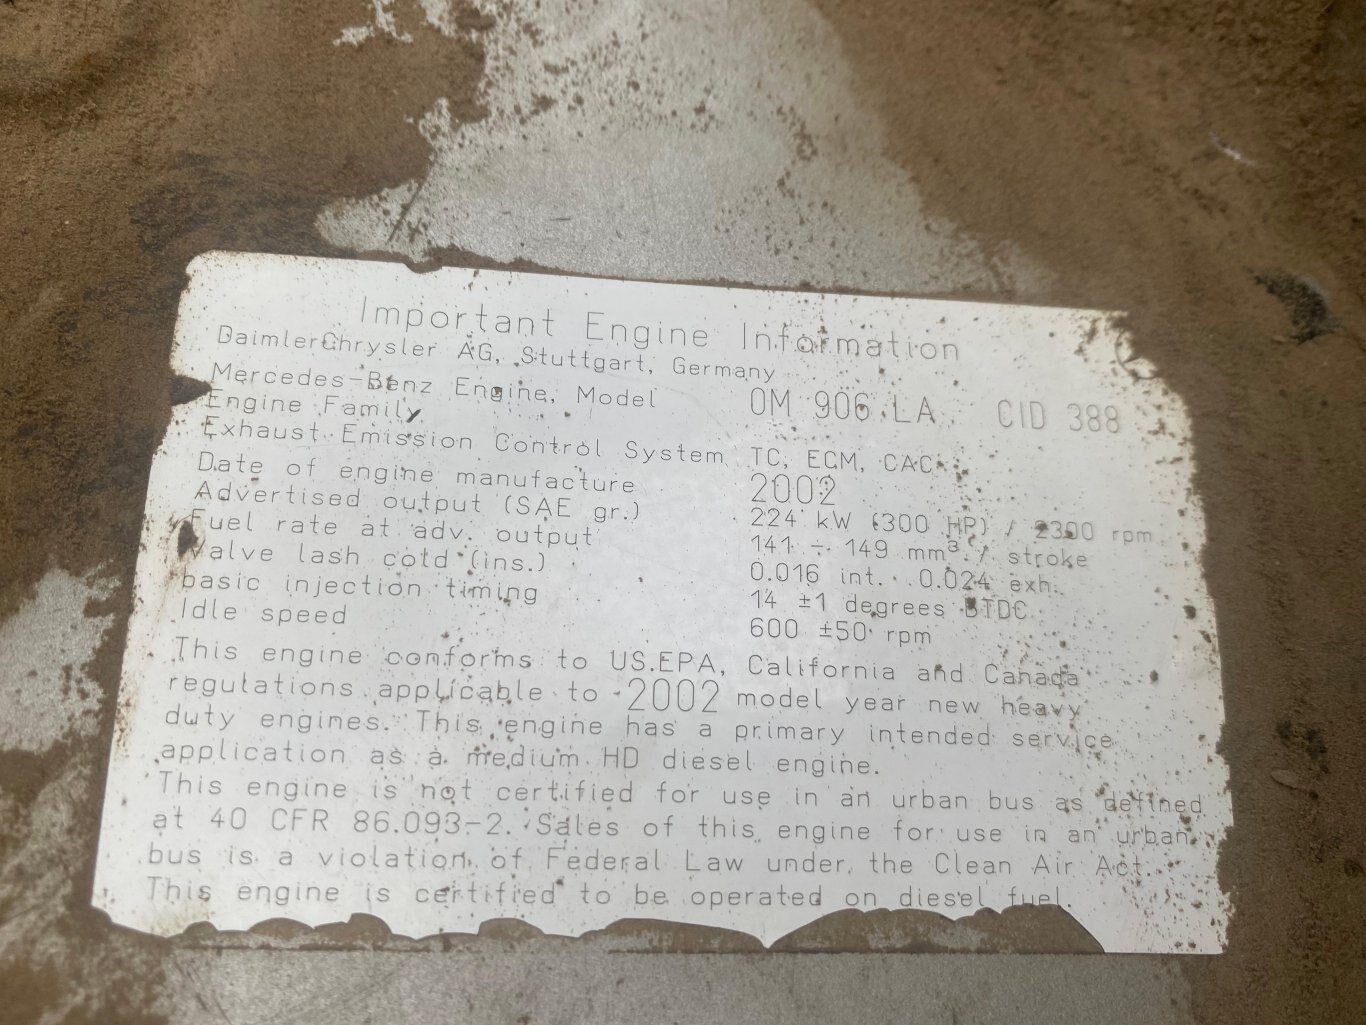 Important Engine Information
DaimlerChrysler AG, Stuttgart, Germany
Mercedes-Benz Engine, Model OM 906 LA CID 388
Engine Family
Exhaust Emission Control System TC, ECM, CAC
Date of engine manufacture 2002
Advertised output (SAE gr.) 224 kW (300 HP) / 2300 rpm
Fuel rate at adv. output 141 ÷ 149 mm³ / stroke
Valve lash cold (ins.) 0.016 int. 0.024 exh.
basic injection timing 14 ±1 degrees BTDC
Idle speed 600 ±50 rpm
This engine conforms to US.EPA, California and Canada
regulations applicable to 2002 model year new heavy
duty engines. This engine has a primary intended service
application as a medium HD diesel engine.
This engine is not certified for use in an urban bus as defined
at 40 CFR 86.093-2. Sales of this engine for use in an urban
bus is a violation of Federal Law under the Clean Air Act.
This engine is certified to be operated on diesel fuel.